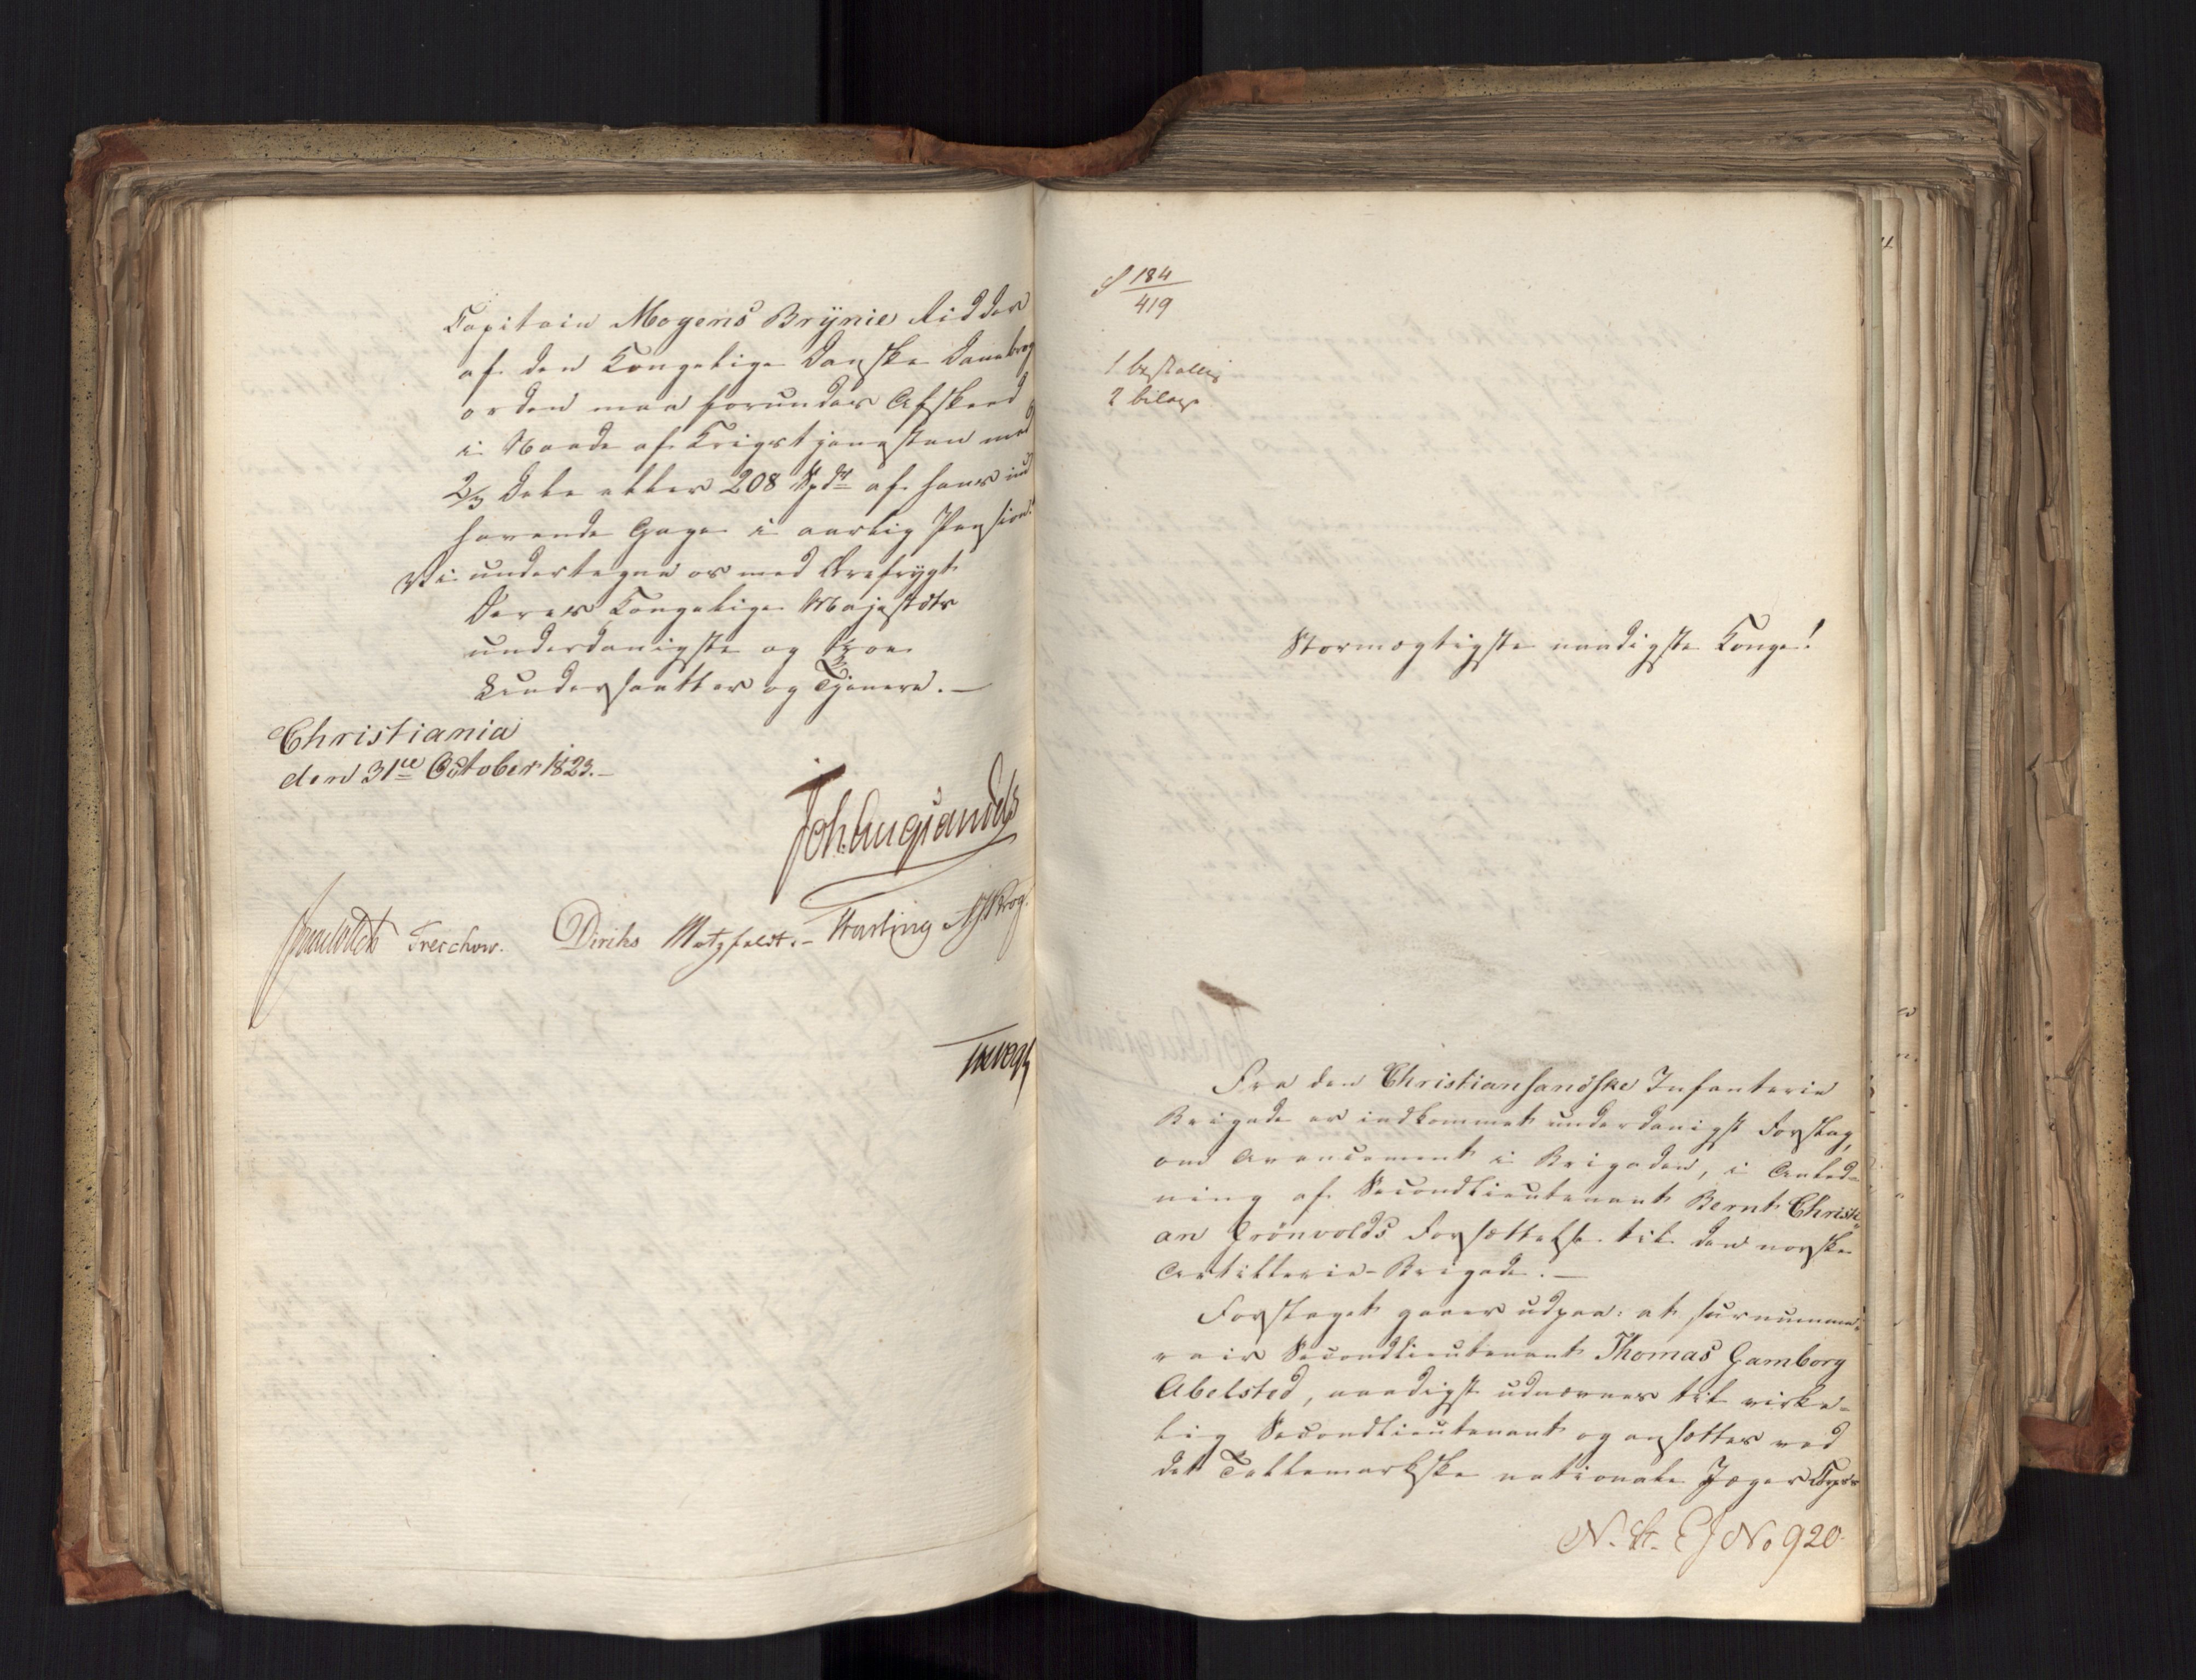 Capitain Mogens Brynie Ridder
af den Kongelige Danske Danebrog
orden maa forundes Afskeed
i Naade af Krigstjenesten med
2/3 Dele eller 208 Spd af hans ind
havende Gage i aarlig Pension.
Vi undertegne os med Ærefrygt
Deres Kongelige Majestæts
underdanigste og troe
Undersaatter og Tjenere.—
Christiania
den 31te October 1823.—
Joh. Aug. Sandels
Treschow. Diriks Motzfeldt.– Krog
184
419
1 bestalling
2 bilage
Stormægtigste naadigste Konge!
Fra den Christiansandske Infanterie
Brigade er indkommet underdanigst Forslag,
om Avancement i Brigaden, i Anled-
ning af Secondlieutenant Bernt Christi
an Grönvolds Forsættelse til den norske
Artillerie-Brigade.—
Forslaget gaaer udpaa: at surnumme-
rair Secondlieutenant Thomas Gamborg
Abelsted, naadigst udnævnes til virke-
lig Secondlieutenant og ansættes ved
det Tellemarkske nationale Jæger Corps
N. St. E J No 920.